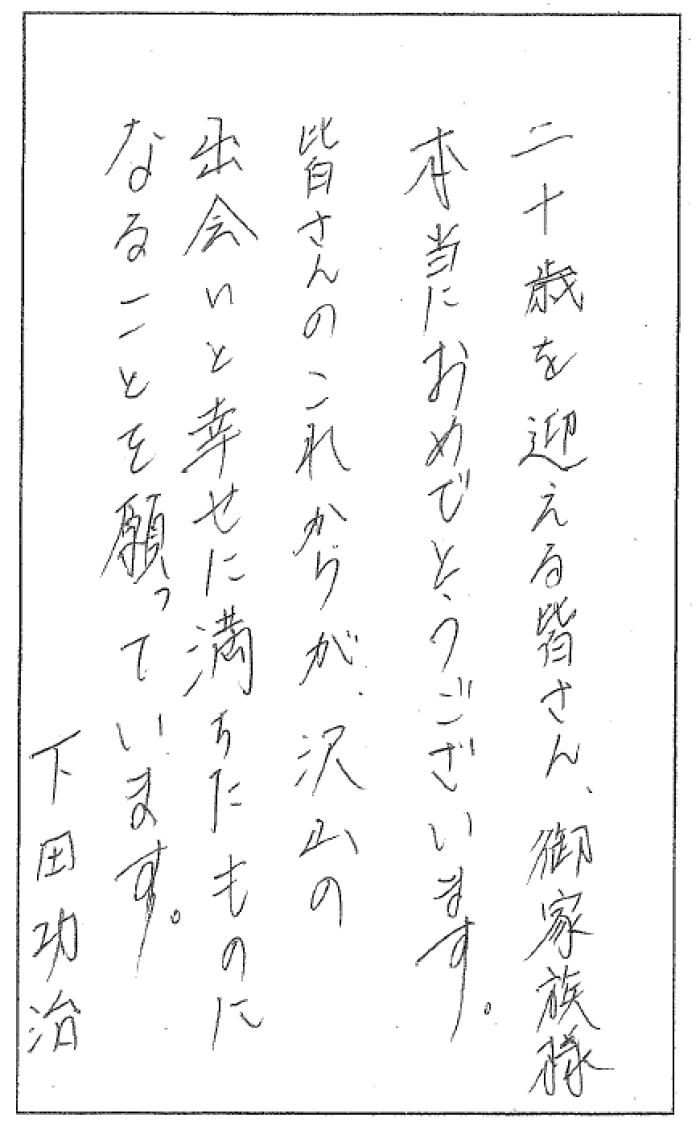 二十歳を迎える皆さん、御家族様
本当におめでとうございます。
皆さんのこれからが、沢山の
出会いと幸せに満ちたものに
なることを願っています。
下田功治